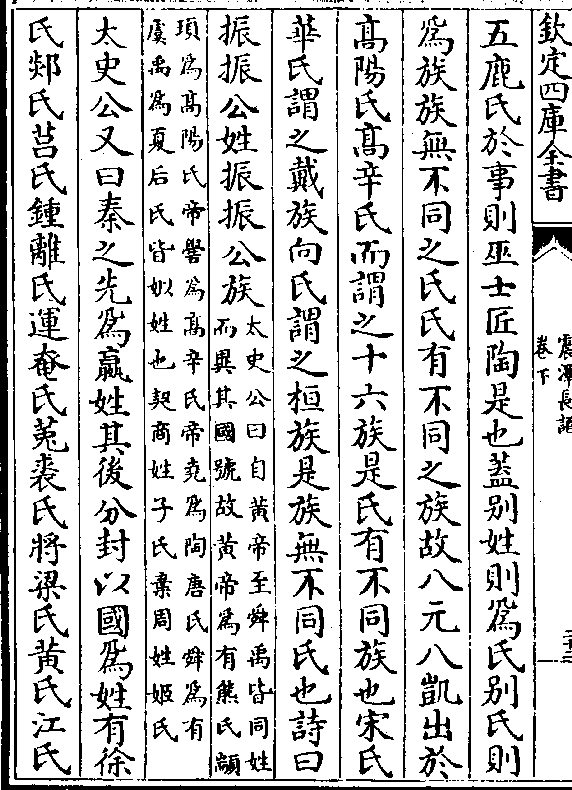 欽定四庫全書
震澤長語
卷下
五鹿氏於事則巫士匠陶是也葢别姓則爲氏别氏則
爲族族無不同之氏氏有不同之族故八元八凱出於
髙陽氏髙辛氏而謂之十六族是氏有不同族也宋氏
華氏謂之戴族向氏謂之桓族是族無不同氏也詩曰
振振公姓振振公族
太史公曰自黄帝至舜禹皆同姓
而異其國號故黄帝爲有熊氏顓
頊爲髙陽氏帝嚳爲髙辛氏帝堯爲陶唐氏舜爲有
虞禹爲夏后氏皆姒姓也契商姓子氏棄周姓姬氏
太史公又曰秦之先爲嬴姓其後分封以國爲姓有徐
氏郯氏莒氏鍾離氏運奄氏菟裘氏將梁氏黄氏江氏